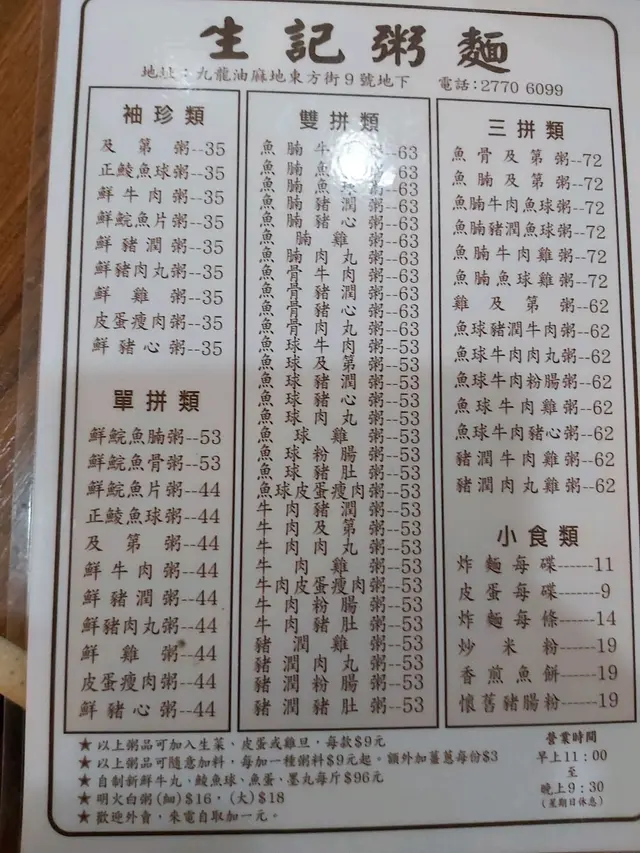 生記粥麵
地址：九龍油麻地東方街9號地下 電話:2770 6099
袖珍類
及第粥--35
正鯪魚球粥--35
鮮牛肉粥--35
鮮鯇魚片粥--35
鮮豬潤粥--35
鮮豬肉丸粥--35
鮮雞粥--35
皮蛋瘦肉粥--35
鮮豬心粥--35
單拼類
鮮鯇魚腩粥--53
鮮鯇魚骨粥--53
鮮鯇魚片粥--44
正鯪魚球粥--44
及第粥--44
鮮牛肉粥--44
鮮豬潤粥--44
鮮豬肉丸粥--44
鮮雞粥--44
皮蛋瘦肉粥--44
鮮豬心粥--44
雙拼類
魚腩牛 --63
魚腩 --63
魚腩魚球粥--63
魚腩豬潤粥--63
魚腩豬心粥--63
魚腩雞粥--63
魚腩肉丸粥--63
魚骨牛肉粥--63
魚骨豬潤粥--63
魚骨豬心粥--63
魚骨肉丸粥--63
魚球牛肉粥--53
魚球及第粥--53
魚球豬潤粥--53
魚球豬心粥--53
魚球肉丸粥--53
魚球雞粥--53
魚球粉腸粥--53
魚球豬肚粥--53
魚球皮蛋瘦肉粥--53
牛肉豬潤粥--53
牛肉及第粥--53
牛肉肉丸粥--53
牛肉雞粥--53
牛肉皮蛋瘦肉粥--53
牛肉粉腸粥--53
牛肉豬肚粥--53
豬潤雞粥--53
豬潤肉丸粥--53
豬潤粉腸粥--53
豬潤豬肚粥--53
三拼類
魚骨及第粥--72
魚腩及第粥--72
魚腩牛肉魚球粥--72
魚腩豬潤魚球粥--72
魚腩牛肉雞粥--72
魚腩魚球雞粥--72
雞及第粥--62
魚球豬潤牛肉粥--62
魚球牛肉肉丸粥--62
魚球牛肉粉腸粥--62
魚球牛肉雞粥--62
魚球牛肉豬心粥--62
豬潤牛肉雞粥--62
豬潤肉丸雞粥--62
小食類
炸麵每碟------11
皮蛋每碟------9
炸麵每條------14
炒米粉------19
香煎魚餅------19
懷舊豬腸粉----19
★以上粥品可加入生菜、皮蛋或雞旦，每款$9元
★以上粥品可隨意加料，每加一種粥料$9元起，額外加薑蔥每份$3
★自制新鮮牛丸、鯪魚球、魚蛋、墨丸每斤$96元
★明火白粥(細)$16，(大)$18
★歡迎外賣，來電自取加一元。
營業時間
早上11:00
至
晚上9:30
(星期日休息)